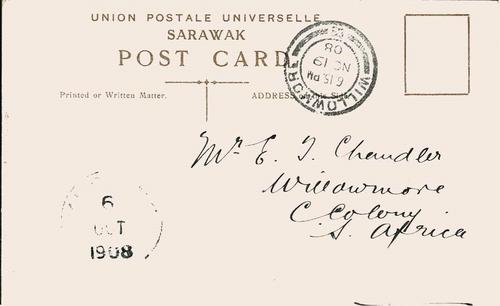 UNION POSTALE UNIVERSELLE
SARAWAK
POST CARD
Printed or Written Matter.
ADDRESS Side
WILLOWMORE
6.15 PM
NO 19
08
Mr E. J. Chandler
Willowmore
C Colony
S. Africa
6
OCT
1908